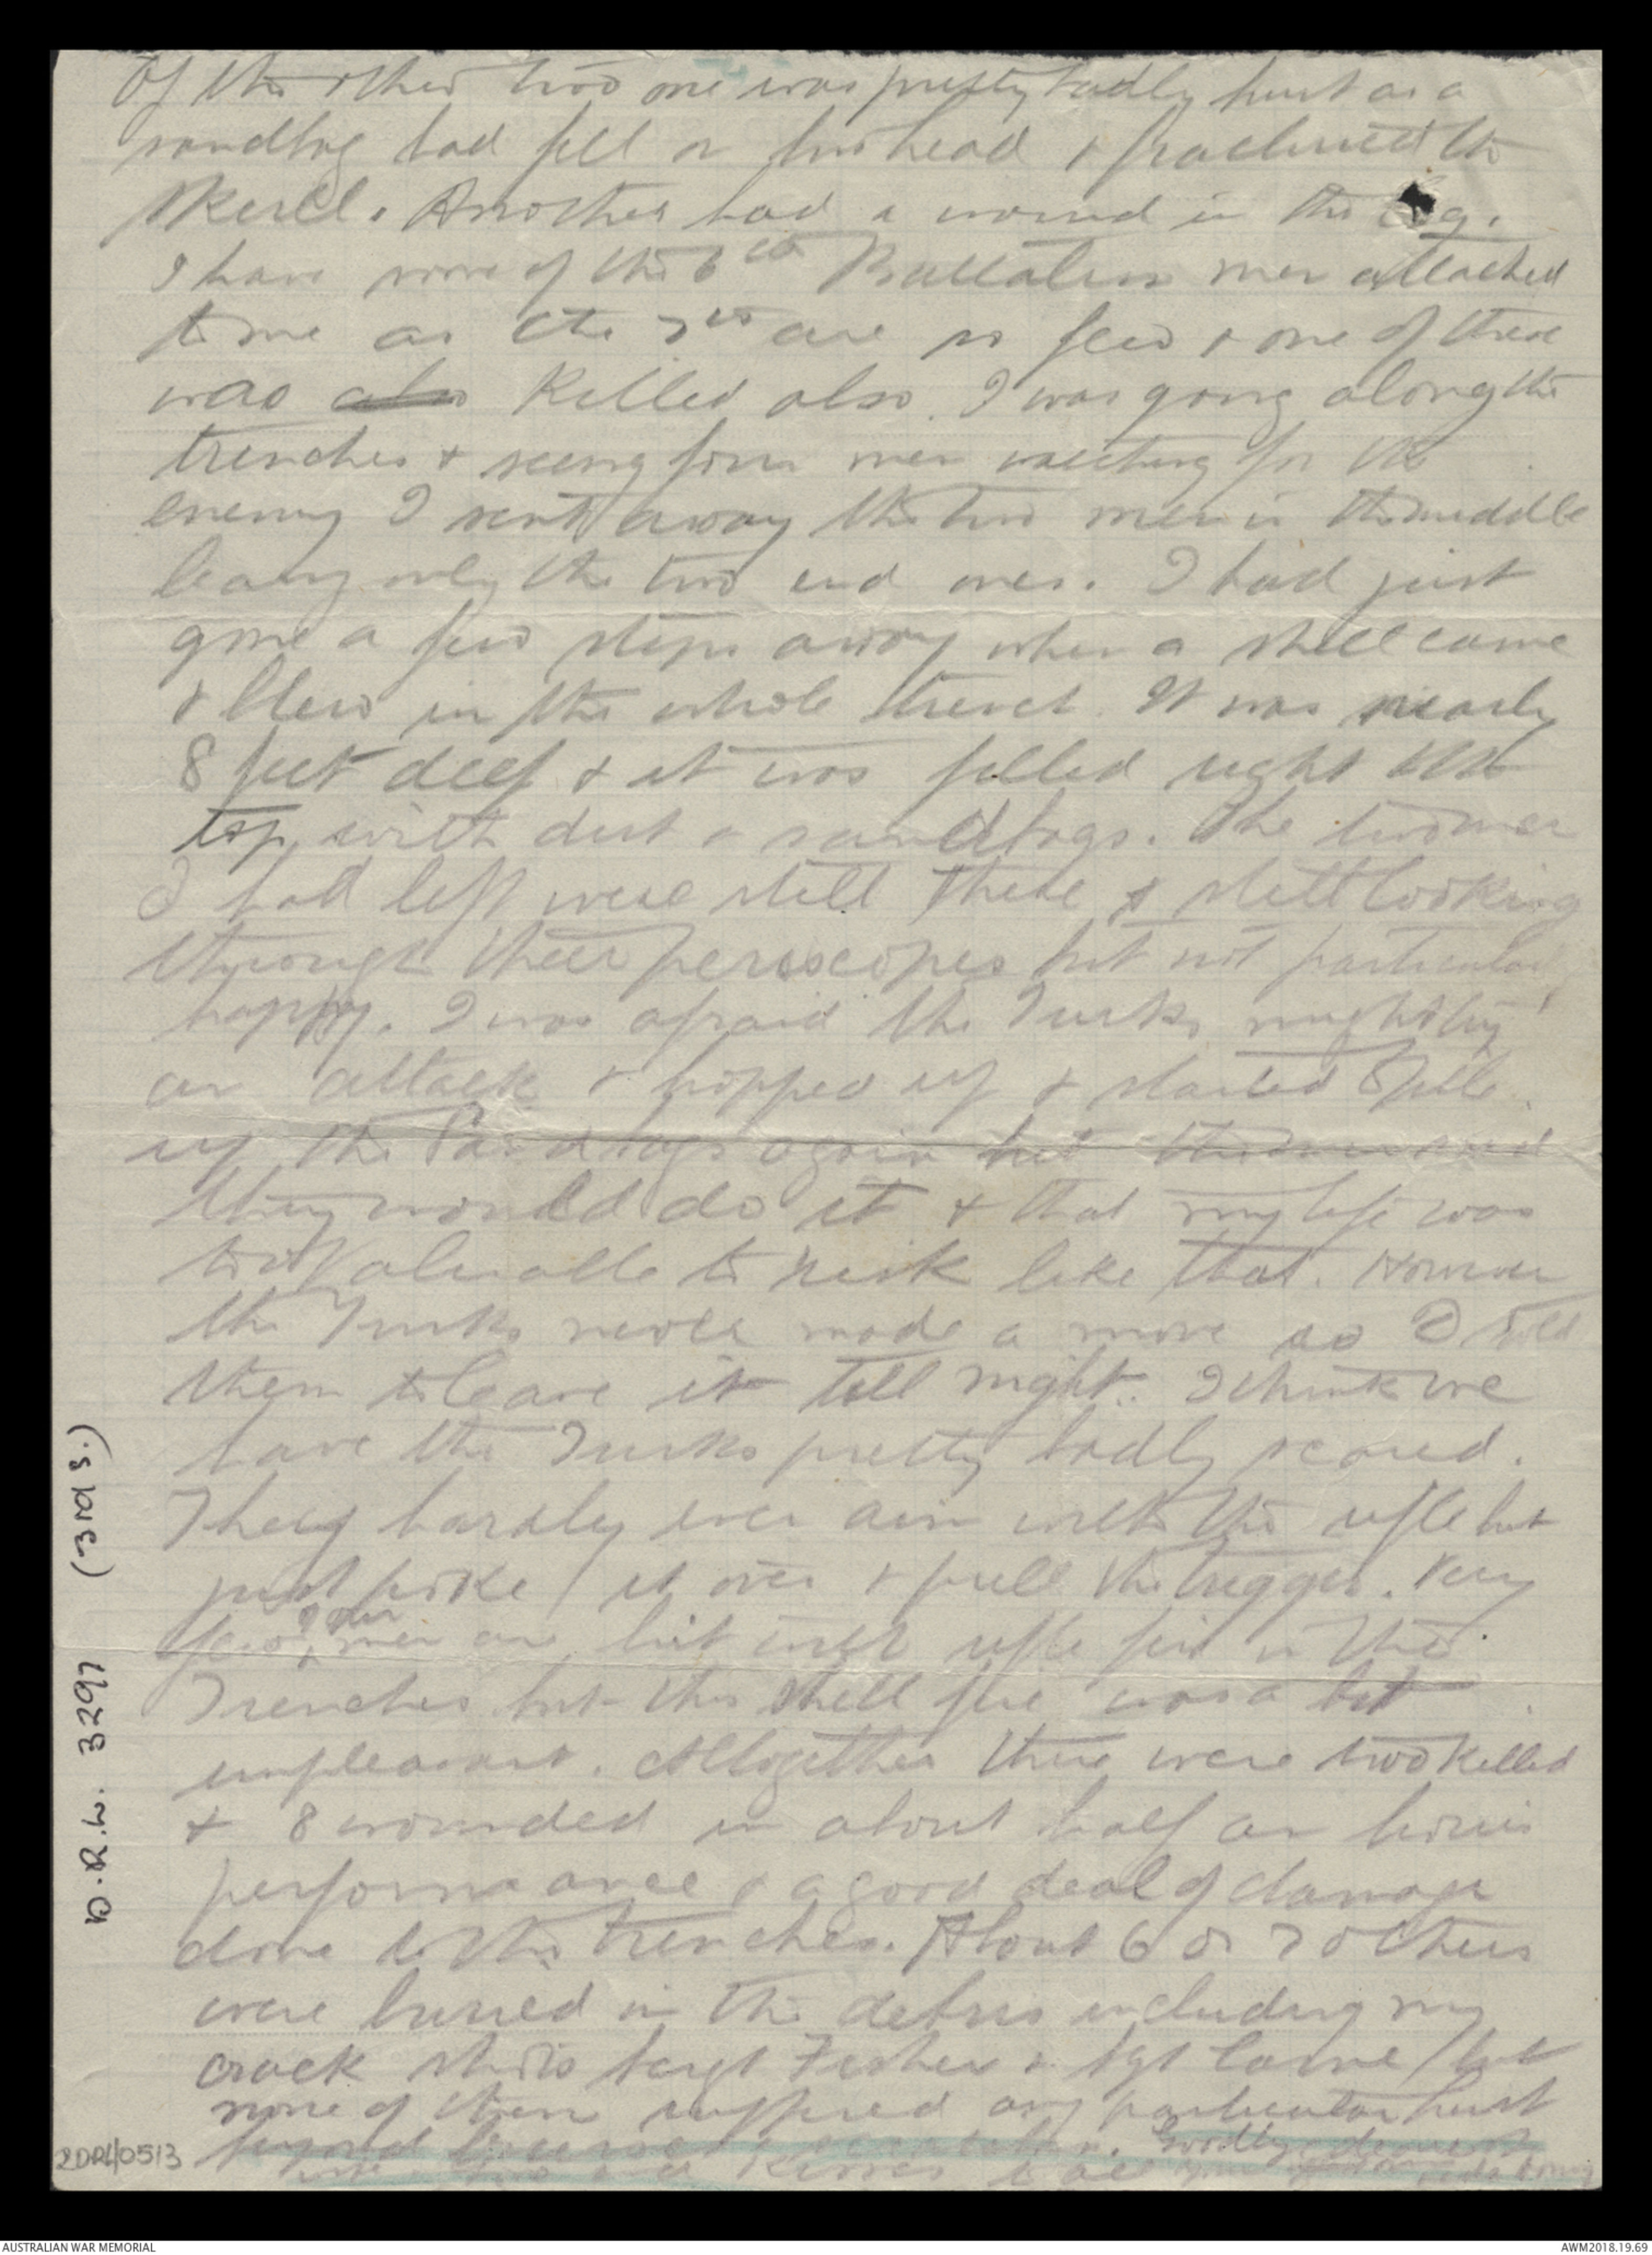 Of the other two one was pretty badly hurt as a
sandbag had fell on his head & fractured the
skull. Another had a wound in the leg.
I have some of the 6th Battalion men attached
to me as the 7th are so few & one of these
was also killed also. I was going along the
trenches & seeing four men watching for the
enemy I sent away the two men in the middle
leavg only the two end ones. I had just
gone a few steps away when a shell came
& blew in the whole trench. It was nearly
8 feet deep & it was filled right to the
top with dirt & sandbags. The two men
I had left were still there & still looking
through their periscopes but not particularly
happy. I was afraid the Turks might try
an attack & hopped up & started to pile
up the sandbags again but the men said
they would do it & that my life was
too valuable to risk like that. However
the Turks never made a move so I told
them to leave it till night. I think we
have the Turks pretty badly scared.
They hardly ever aim with the rifle but
just poke it over & pull the trigger. Very
few of our men are hit with rifle fire in the
Trenches but this shell fire was a bit
unpleasant. Altogether there were two killed
& 8 wounded in about half an hours
performance & a good deal of damage
done to the trenches. About 6 or 7 others
were buried in the debris including my
crack shots Sergt Fisher & Sgt / but
none of them suffered any particular hurt
beyond Goodbye dearest
kisses to all
D.R.L. 3297 (3rd S.)
2DRL/0513
AUSTRALIAN WAR MEMORIAL
AWM2018.19.69